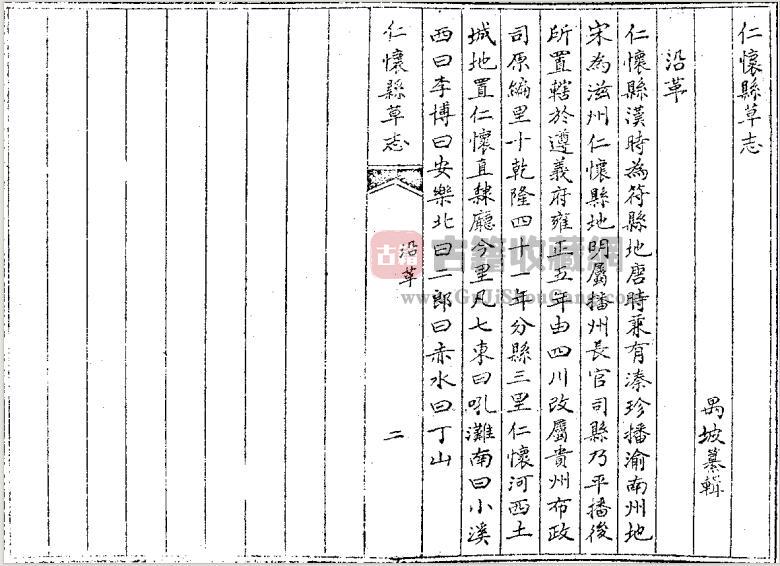 仁懷縣草志
禺坡纂輯
沿革
仁懷縣漢時為符縣地唐時兼有溱珍播渝南州地
宋為滋州仁懷縣地明屬播州長官司縣乃平播後
所置轄於遵義府雍正五年由四川改屬貴州布政
司原編里十乾隆四十一年分縣三里仁懷河西土
城地置仁懷直隸廳今里凡七東曰吼灘南曰小溪
西曰李博曰安樂北曰二郎曰赤水曰丁山
仁懷縣草志
沿革
二
古籍
古籍收藏網
www.GuJiShouCang.com